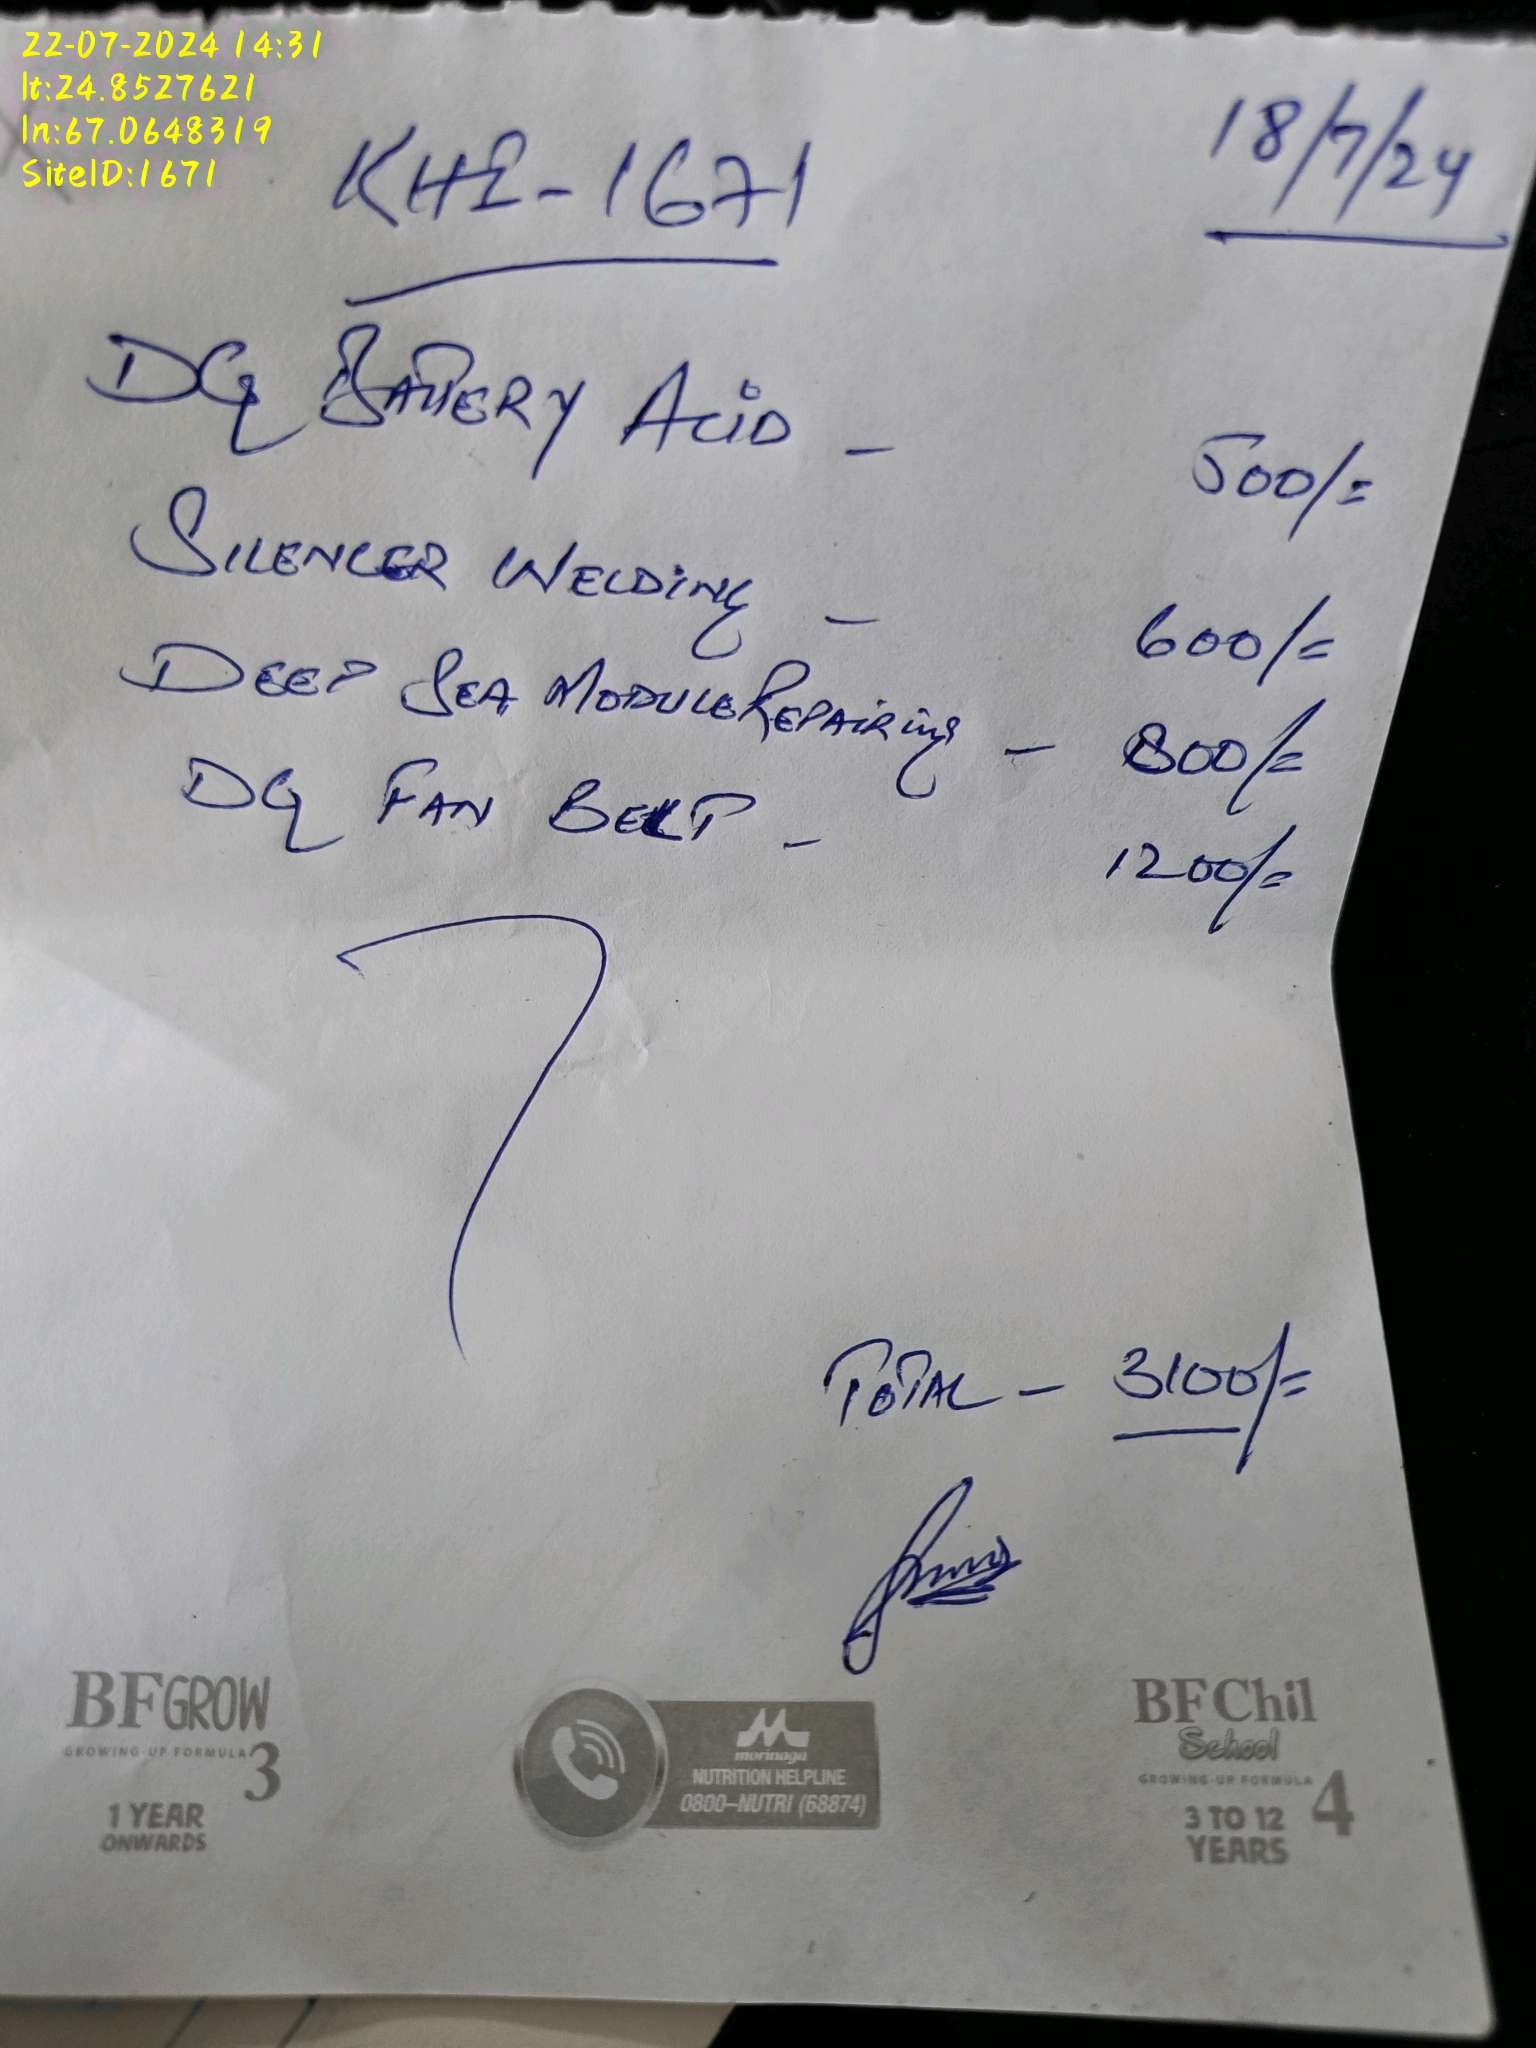 22-07-2024 14:31
lt:24.8527621
ln:67.0648319
SiteID:1671
KHI-1671
18/7/24
DG BATTERY ACID - 500/=
SILENCER WELDING - 600/=
DEEP SEA MODULE REPAIRING - 800/=
DG FAN BELT - 1200/=
TOTAL - 3100/=
BF GROW
GROWING-UP FORMULA 3
1 YEAR
ONWARDS
morinaga
NUTRITION HELPLINE
0800-NUTRI (68874)
BF Chil
School
GROWING-UP FORMULA 4
3 TO 12
YEARS